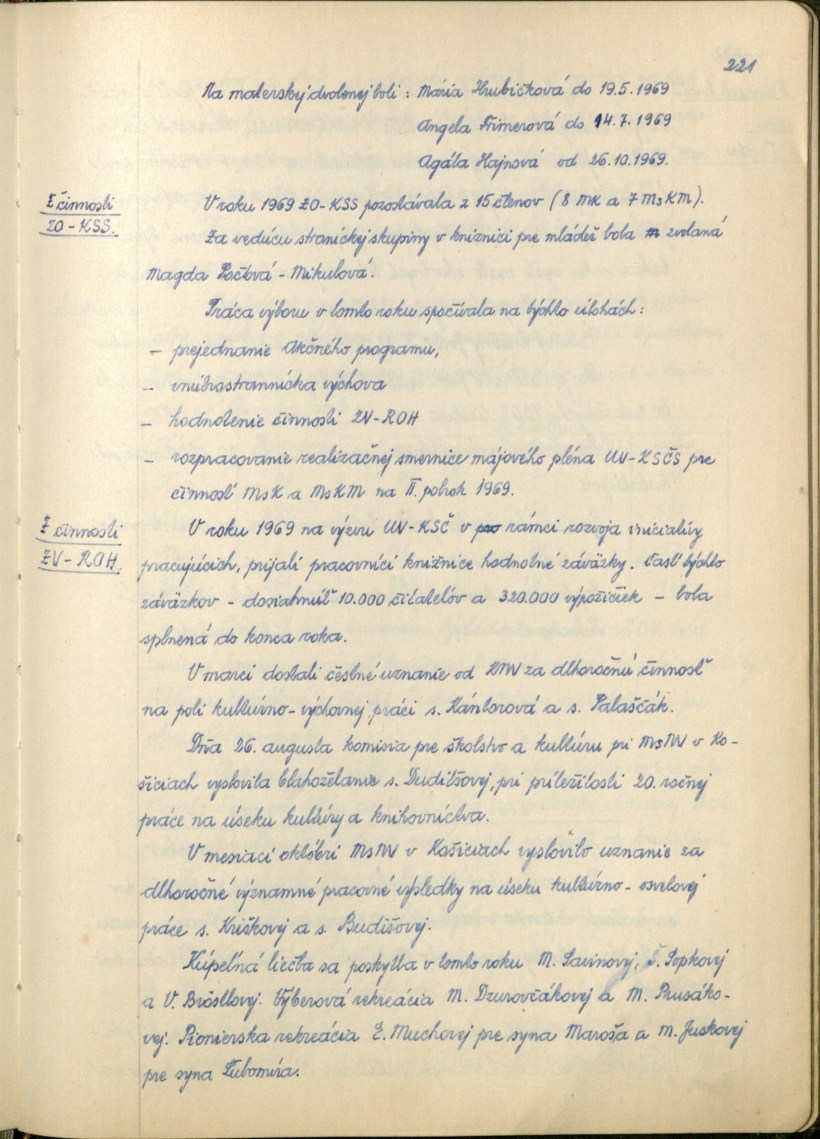 221
Na materskej dovolenej boli : Mária Hrubičková do 19.5.1969
Angela Frimerová do 14.7.1969
Agáta Hajnová od 26.10.1969.
Z činnosti
ZO-KSS.
V roku 1969 ZO-KSS pozostávala z 15 členov (8 MK a 7 MsKM).
Za vedúcu straníckej skupiny v knižnici pre mládež bola zvolaná
Magda -Mikulová.
Práca výboru v tomto roku spočívala na týchto úlohách:
- prejednanie Akčného programu,
- vnútrostrannícka výchova
- hodnotenie činnosti ZV-ROH
- rozpracovanie realizačnej smernice májového pléna ÚV-KSČS pre
činnosť MsK a MsKM na II. polrok 1969.
Z činnosti
ZV-ROH.
V roku 1969 na výzvu ÚV-KSČ v pro rámci rozvoja iniciatívy
pracujúcich, prijali pracovníci knižnice hodnotné záväzky. Časť týchto
záväzkov - dosiahnuť 10.000 čitateľov a 320.000 výpožičiek - bola
splnená do konca roka.
V marci dostali čestné uznanie od KNV za dlhoročnú činnosť
na poli kultúrno-výchovnej práci s. Kántorová a s. Palaščák.
Dňa 26. augusta komisia pre školstvo a kultúru pri MsNV v Ko-
šiciach vyslovila blahoželanie s. pri príležitosti 20. ročnej
práce na úseku kultúry a knihovníctva.
V mesiaci októbri MsNV v Košiciach vyslovilo uznanie za
dlhoročné významné pracovné výsledky na úseku kultúrno-osvetovej
práce s. Kriškovej a s. Budišovej.
Kúpeľná liečba sa poskytla v tomto roku M. Savinovej, Š. Sopkovej
a V. Bröstlovej. Výberová rekreácia M. Dzurovčákovej a M. Prusáko-
vej. Pionierska rekreácia E. Muchovej pre syna Maroša a M. Juskovej
pre syna Ľubomíra.